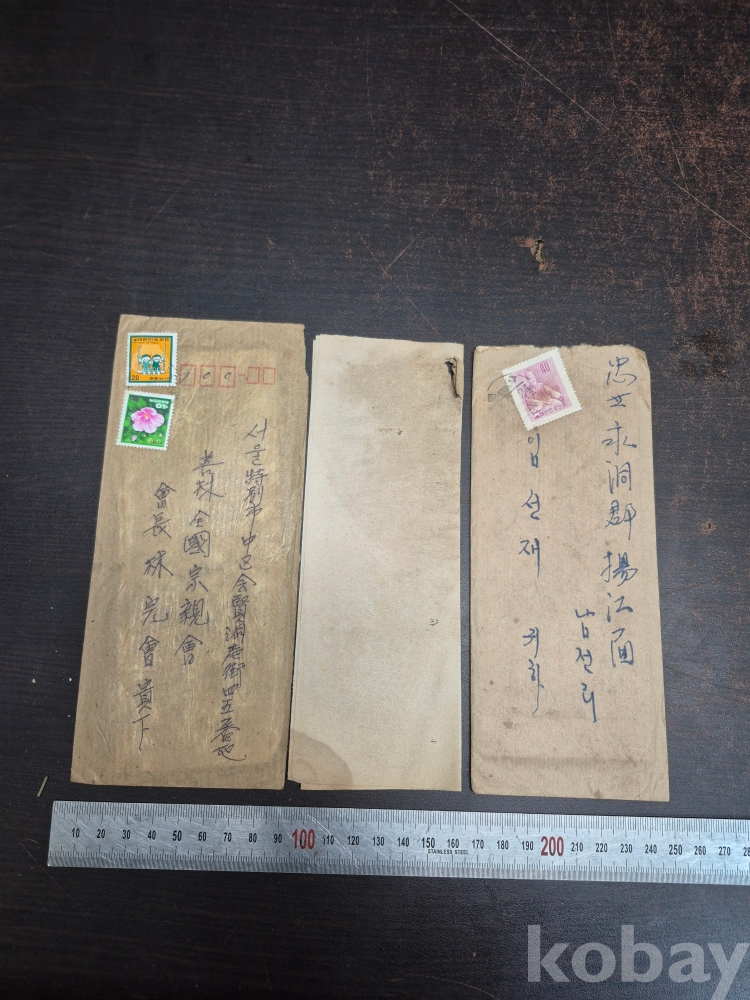 20
40
100
서울特別市 中区 会賢洞 壱街 四五番地
全國宗親會
會長 林 完 會 貴下
忠北 永洞郡 揚江面
남전리
임선재 귀하
10 20 30 40 50 60 70 80 90 100 110 120 130 140 150 160 170 180 190 200 210 220 230 240 250 260 270 28
STAINLESS STEEL
kobay